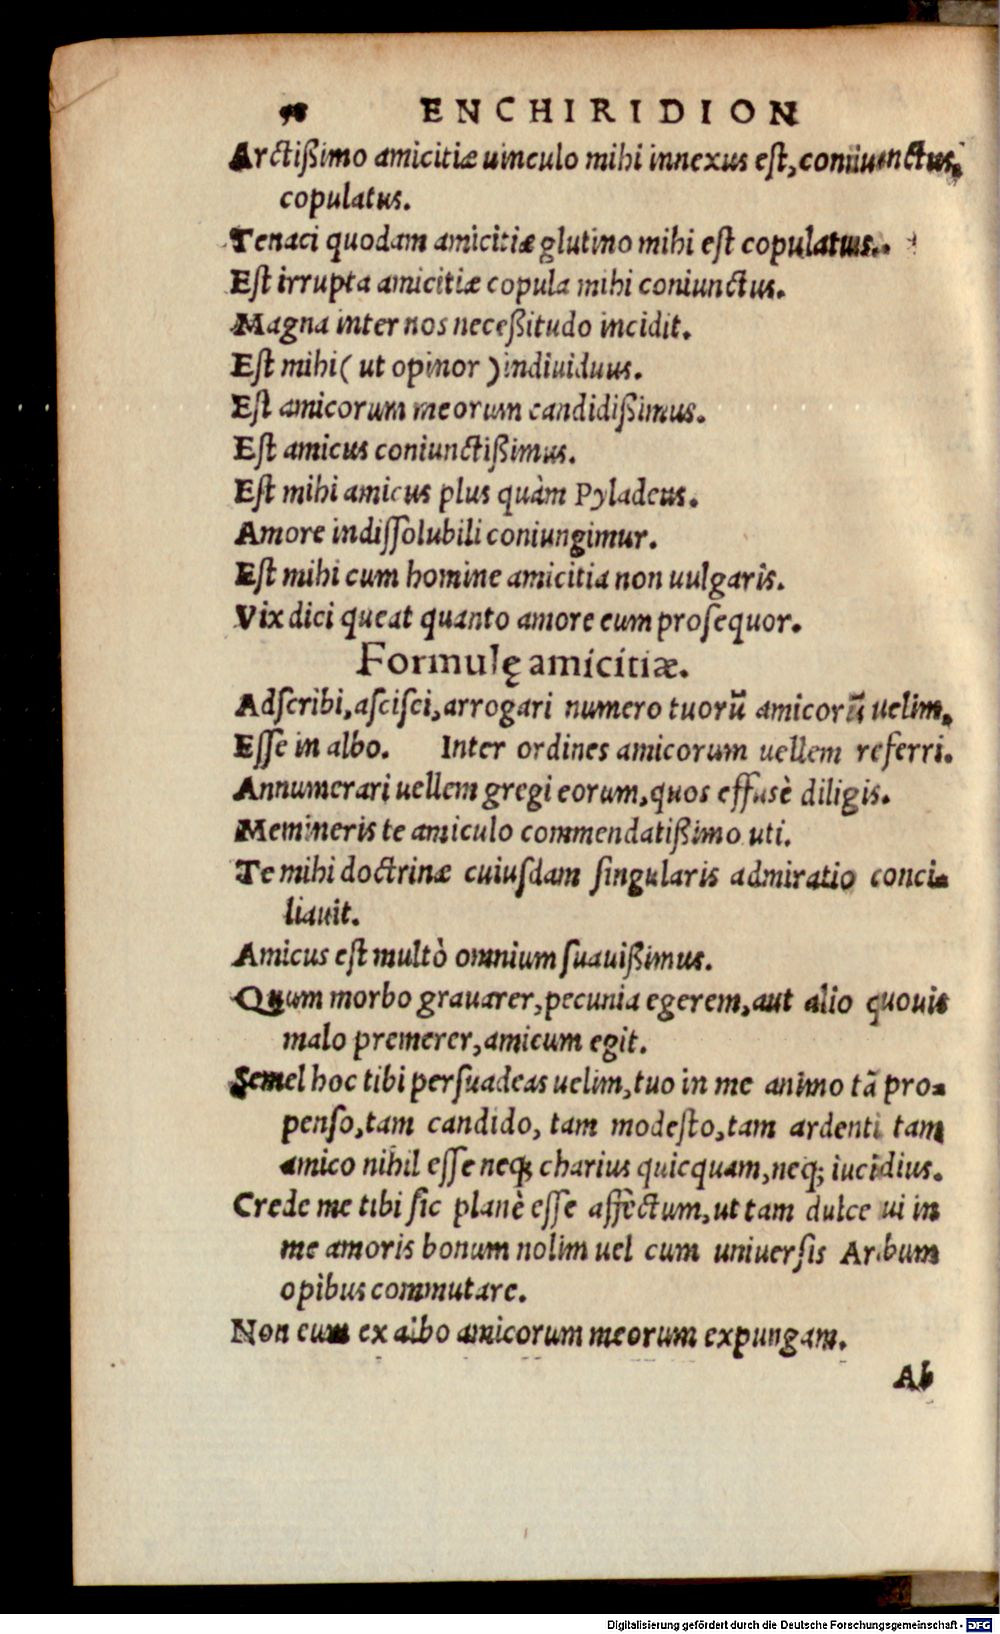 98 ENCHIRIDION
Arctißimo amicitiæ uinculo mihi innexus est, coniunctus,
copulatus.
Tenaci quodam amicitiæ glutino mihi est copulatus.
Est irrupta amicitiæ copula mihi coniunctus.
Magna inter nos neceßitudo incidit.
Est mihi ( ut opinor ) indiuiduus.
Est amicorum meorum candidißimus.
Est amicus coniunctißimus.
Est mihi amicus plus quàm Pyladeus.
Amore indissolubili coniungimur.
Est mihi cum homine amicitia non uulgaris.
Vix dici queat quanto amore eum prosequor.
Formulę amicitiæ.
Adscribi, ascisci, arrogari numero tuorū amicorū uelim.
Esse in albo. Inter ordines amicorum uellem referri.
Annumerari uellem gregi eorum, quos effusè diligis.
Memineris te amiculo commendatißimo uti.
Te mihi doctrinæ cuiusdam singularis admiratio conci-
liauit.
Amicus est multò omnium suauißimus.
Quum morbo grauarer, pecunia egerem, aut alio quouis
malo premerer, amicum egit.
Semel hoc tibi persuadeas uelim, tuo in me animo tā pro-
penso, tam candido, tam modesto, tam ardenti tam
amico nihil esse neq; charius quicquam, neq; iucūdius.
Crede me tibi sic planè esse affectum, ut tam dulce ui in
me amoris bonum nolim uel cum uniuersis Arabum
opibus commutare.
Non eum ex albo amicorum meorum expungam.
Ab
Digitalisierung gefördert durch die Deutsche Forschungsgemeinschaft - DFG